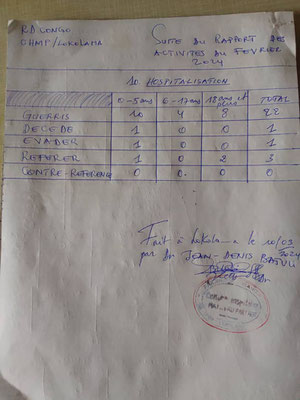 RD CONGO
CHMP/LOKOLAMA
SUITE DU RAPPORT DES
ACTIVITES DU FEVRIER
2024
10 HOSPITALISATION
0-5ans 6-17ans 18ans et plus TOTAL
GUERRIS 10 4 8 22
DECEDE 1 0 0 1
EVADER 1 0 0 1
REFERER 1 0 2 3
CONTRE-REFERENCE 0 0 0 0
Fait à Lokolama le 10/03/2024
par Dr JEAN-DENIS